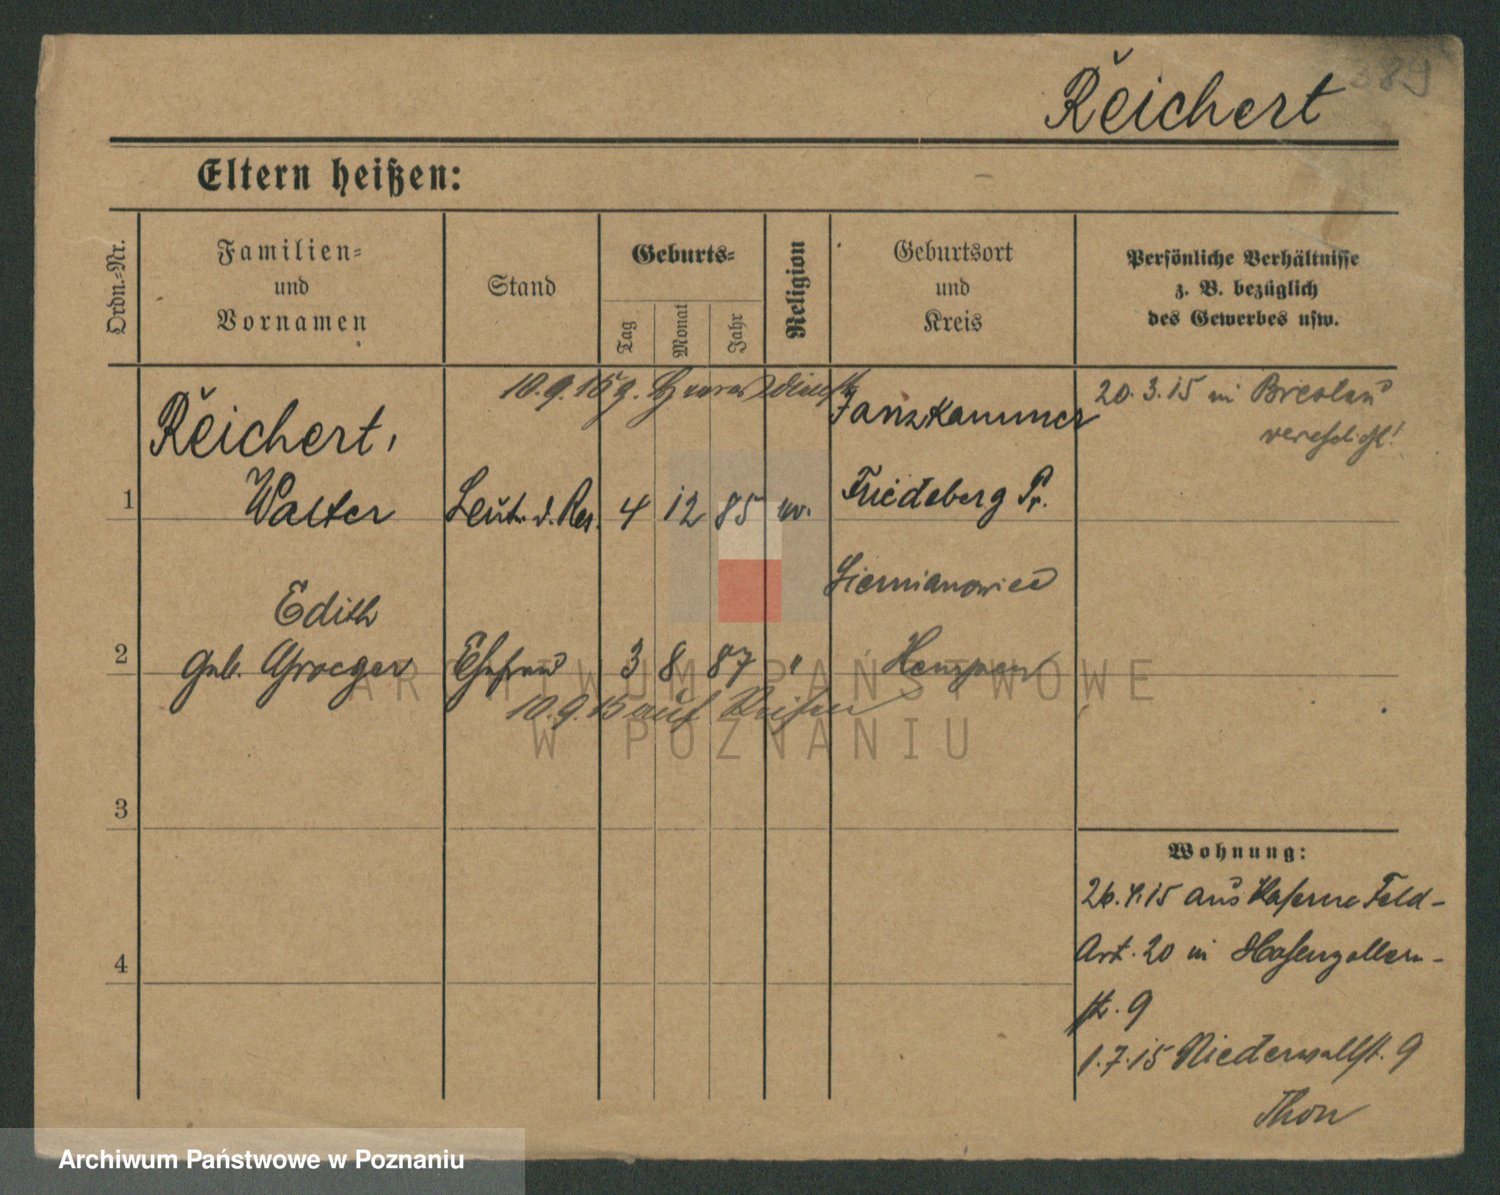 389
Reichert
Eltern heißen:
Ordn.-Nr.
Familien-
und
Vornamen
Stand
Geburts-
Tag
Monat
Jahr
Religion
Geburtsort
und
Kreis
Persönliche Verhältnisse
z. B. bezüglich
des Gewerbes usw.
10.9.15 z. Heeresdienst
20.3.15 in Breslau
verehelicht!
Reichert,
Tanzkammer
1 Walter Leut. d. Res. 4 12 85 ev. Friedeberg Pr.
Edith
Siemianowice
2 geb. Groeger Ehefrau 3 8 87 "
10.9.15 auf Reisen
3
4
Wohnung:
26.4.15 aus Kaserne Feld-
Art. 20 in Hohenzollern-
str. 9
1.7.15 Niederwallst. 9
Thon
ARCHIWUM PAŃSTWOWE
W POZNANIU
Archiwum Państwowe w Poznaniu